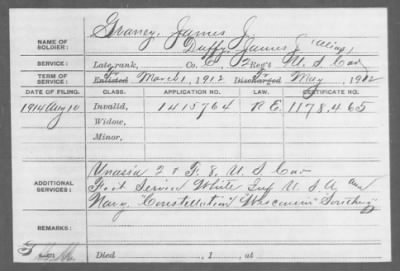 NAME OF SOLDIER:
Graney, James J.
Duffy, James J. (alias)
SERVICE:
Late rank, Co. 2 Reg't U. S. Cav
TERM OF SERVICE:
Enlisted March 1, 1912 Discharged May , 1912
DATE OF FILING. CLASS. APPLICATION NO. LAW. CERTIFICATE NO.
1914 Aug 10 Invalid, 1415764 R.E. 1178.465
Widow,
Minor,
ADDITIONAL SERVICES:
& F. 8, U. S. Cav
Service White Inf U. S. A. and
Navy "Constellation" "Wisconsin"
REMARKS:
Died , 1 , at